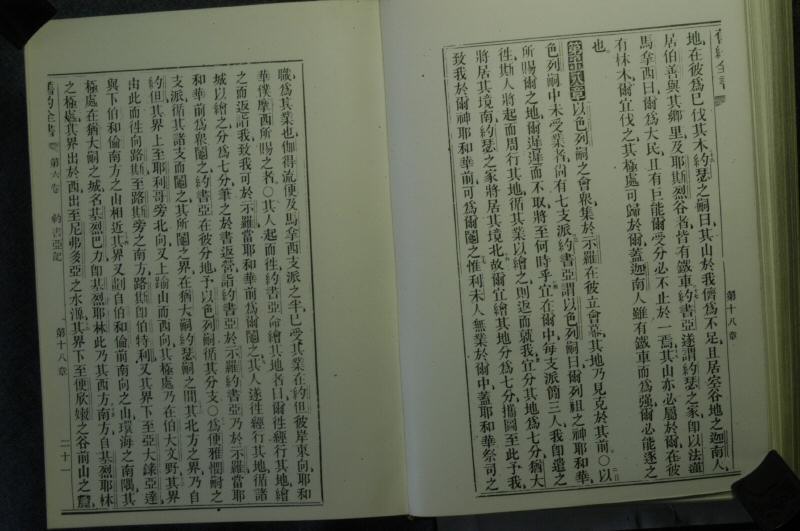 舊約全書
第十八章
地、在彼爲己伐其木、約瑟之嗣曰、其山於我儕爲不足、且居窊谷地之迦南人、
居伯善與其鄉里、及耶斯烈谷者、皆有鐵車、約書亞遂謂約瑟之家、卽以法蓮
馬拿西曰、爾爲大民、且有巨能、爾受分必不止於一焉、其山亦必屬於爾、在彼
有林木、爾宜伐之、其極處可歸於爾、蓋迦南人雖有鐵車而爲强、爾必能逐之
也、
第十八章 以色列嗣之會衆集於示羅、在彼立會幕、其地乃見克於其前○以
色列嗣中未受業者、尚有七支派、約書亞謂以色列嗣曰、爾列祖之神耶和華、
所賜爾之地、爾遲遲而不取、將至何時乎、宜在爾中、每支派簡三人、我卽遣之
徃、斯人將起而周行其地、循其業以繪之、則返而就我、宜分其地爲七分、猶大
將居其境南、約瑟之家將居其境北、故爾宜繪其地分爲七分、攜圖至此予我、
致我於爾神耶和華前、可爲爾鬮之、惟利未人無業於爾中、蓋耶和華祭司之
職、爲其業也、伽得流便及馬拿西支派之半、已受其業、在約但彼岸東向、耶和
華僕摩西所賜之者、○其人起而徃、約書亞命繪其地者曰、爾徃經行其地、繪
之而返詣我、致我可於示羅當耶和華前爲爾鬮之、其人遂徃經行其地、循諸
城以繪之、分爲七分、筆之於書、返營詣約書亞於示羅、約書亞乃於示羅當耶
和華前爲衆鬮之、約書亞在彼分地予以色列嗣、循其分支○爲便雅憫嗣之
支派、循其諸支而鬮之、其所鬮之界、在猶大嗣約瑟嗣之間、其北方之界、乃自
約但、其界上至耶利哥旁北向、又上踰山而西向、其極處乃在伯大文野、其界
由此而徃、向路斯、至路斯旁之南方、路斯卽伯特利、又其界下至亞大錄亞達
與下伯和倫南方之山相近、其界又劃自伯和倫前南向之山、環海之南隅、其
極處在猶大嗣之城、名基烈巴力、卽基烈耶林、此乃其西方、南方自基烈耶林
之極處、其界出於西、出至尼弗多亞之水源、其界下至便欣嫩之谷前山之麓、
舊約全書
第六卷 約書亞記
第十八章
二十一